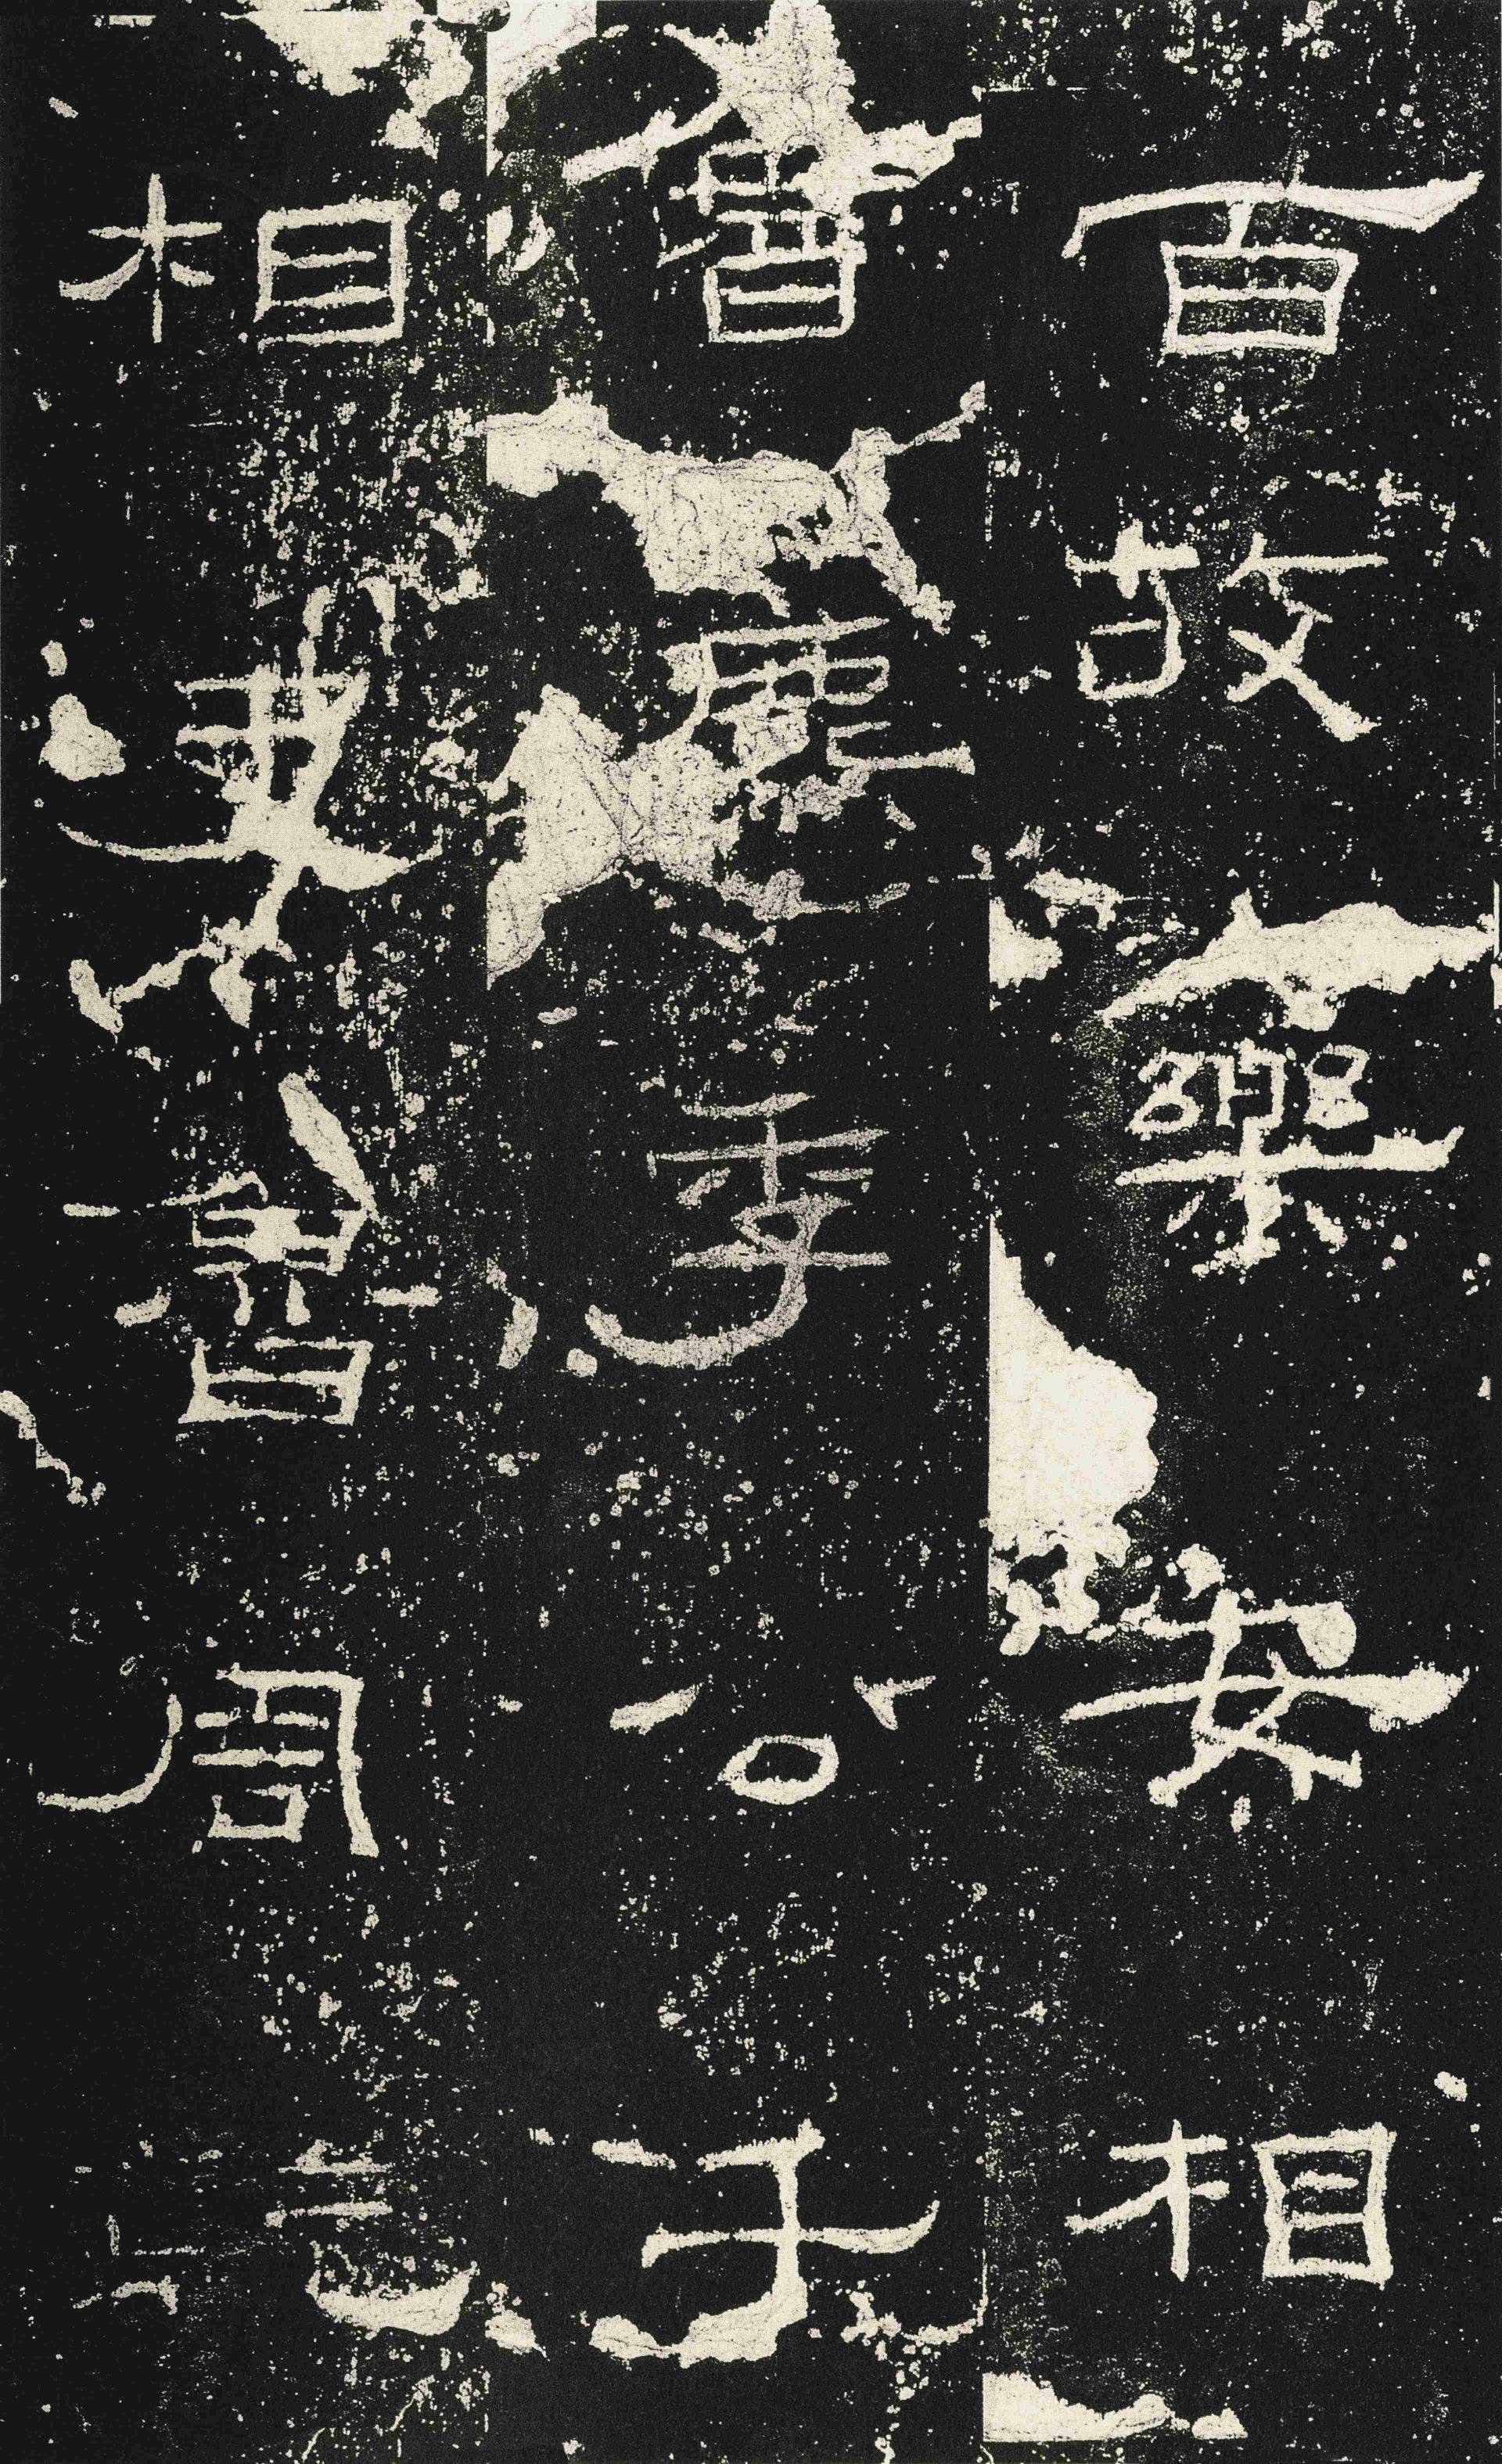 百故樂安相
魯麃季公千
相史魯周乾